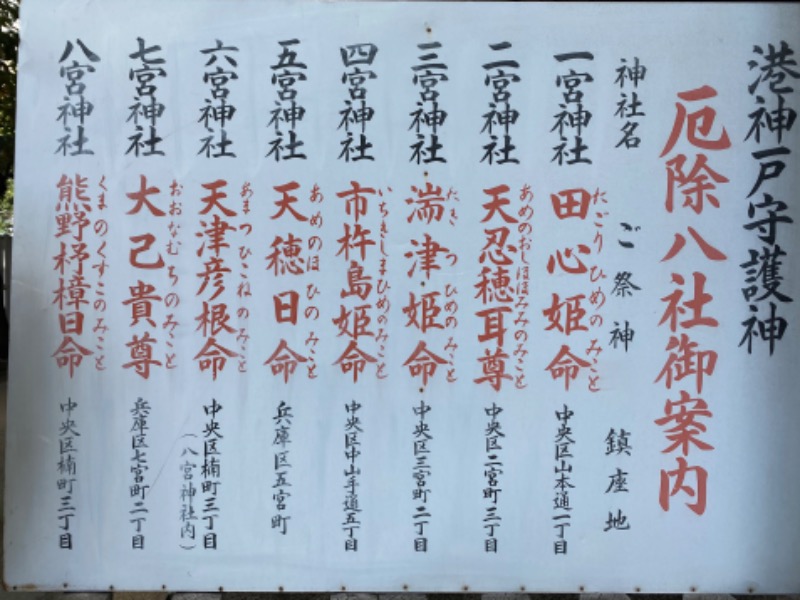 港神戸守護神
厄除八社御案内
神社名 ご祭神 鎮座地
一宮神社 田心姫命 たごりひめのみこと 中央区山本通一丁目
二宮神社 天忍穂耳尊 あめのおしほほみみのみこと 中央区二宮町三丁目
三宮神社 湍津姫命 たきつひめのみこと 中央区三宮町二丁目
四宮神社 市杵島姫命 いちきしまひめのみこと 中央区中山手通五丁目
五宮神社 天穂日命 あめのほひのみこと 兵庫区五宮町
六宮神社 天津彦根命 あまつひこねのみこと 中央区楠町三丁目
(八宮神社内)
七宮神社 大己貴尊 おおなむちのみこと 兵庫区七宮町二丁目
八宮神社 熊野杼樟日命 くまのくすこのみこと 中央区楠町三丁目